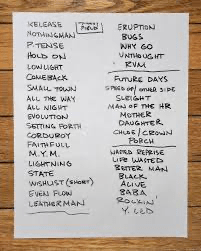 RELEASE
NOTHINGMAN
P-TENSE
HOLD ON
LOW LIGHT
COMEBACK
SMALL TOWN
ALL THE WAY
ALL NIGHT
EVOLUTION
SETTING FORTH
CORDUROY
FAITHFULL
M.Y.M.
LIGHTNING
STATE
WISHLIST (SHORT)
EVEN FLOW
LEATHERMAN
FIELD
ERUPTION
BUGS
WHY GO
UNTHOUGHT
RVM
FUTURE DAYS
SPEED OF / OTHER SIDE
SLEIGHT
MAN OF THE HR
MOTHER
DAUGHTER
CHLOE / CROWN
PORCH
WASTED REPRISE
LIFE WASTED
BETTER MAN
BLACK
ALIVE
BABA
ROCKIN'
Y. LED